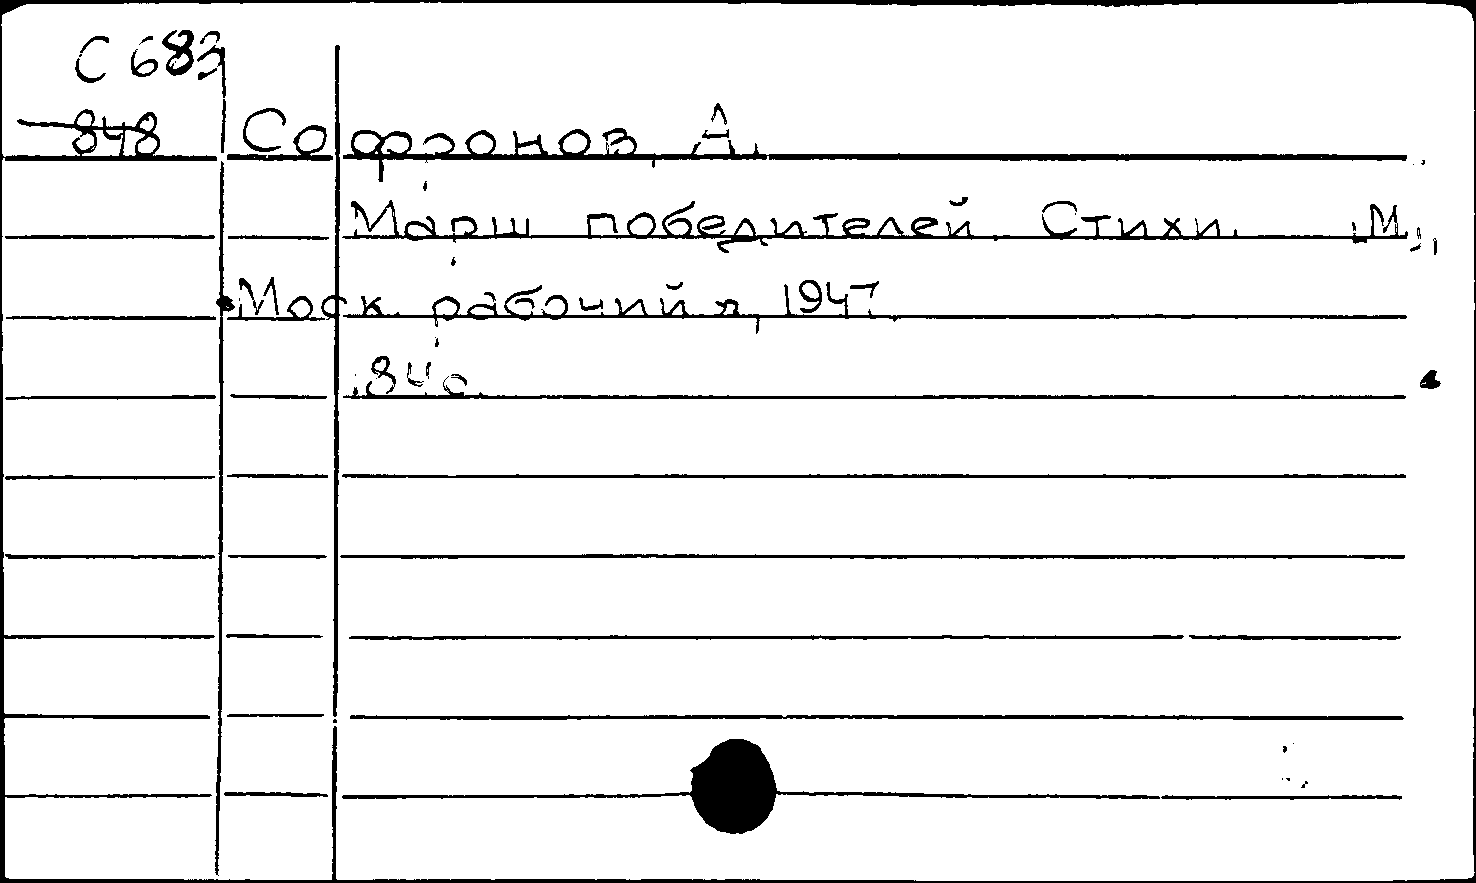 С 683
848 Софронов, А.
Марш победителей. Стихи. М.,
"Моск. рабочий", 1947.
84 с.